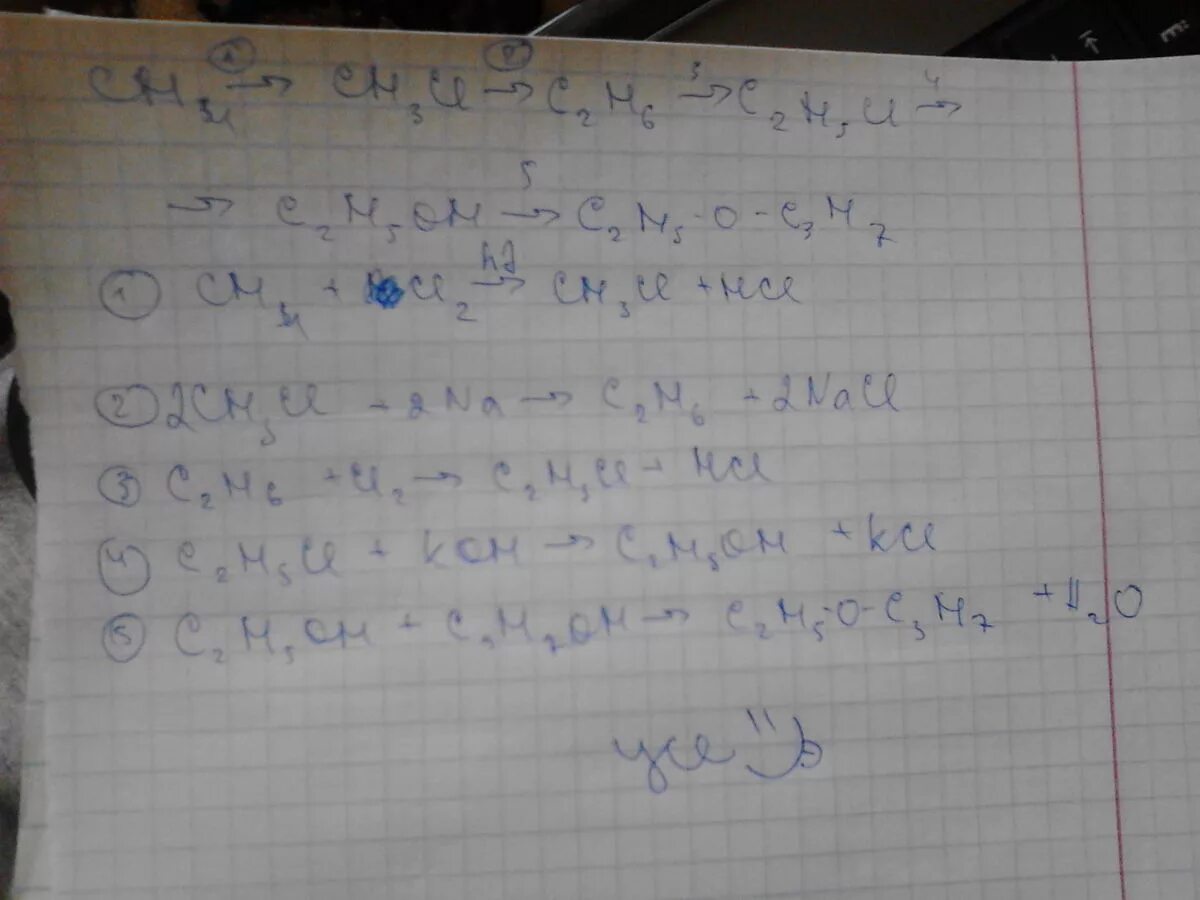 CH₄ ①→ CH₃Cl ②→ C₂H₆ 3→ C₂H₅Cl 4→
→ C₂H₅OH 5→ C₂H₅-O-C₃H₇
① CH₄ + Cl₂ → CH₃Cl + HCl
② 2CH₃Cl + 2Na → C₂H₆ + 2NaCl
③ C₂H₆ + Cl₂ → C₂H₅Cl + HCl
④ C₂H₅Cl + KOH → C₂H₅OH + KCl
⑤ C₂H₅OH + C₃H₇OH → C₂H₅-O-C₃H₇ + H₂O
усе